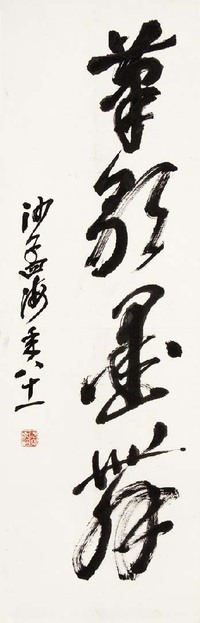 筆歌墨舞
沙孟海年八十一